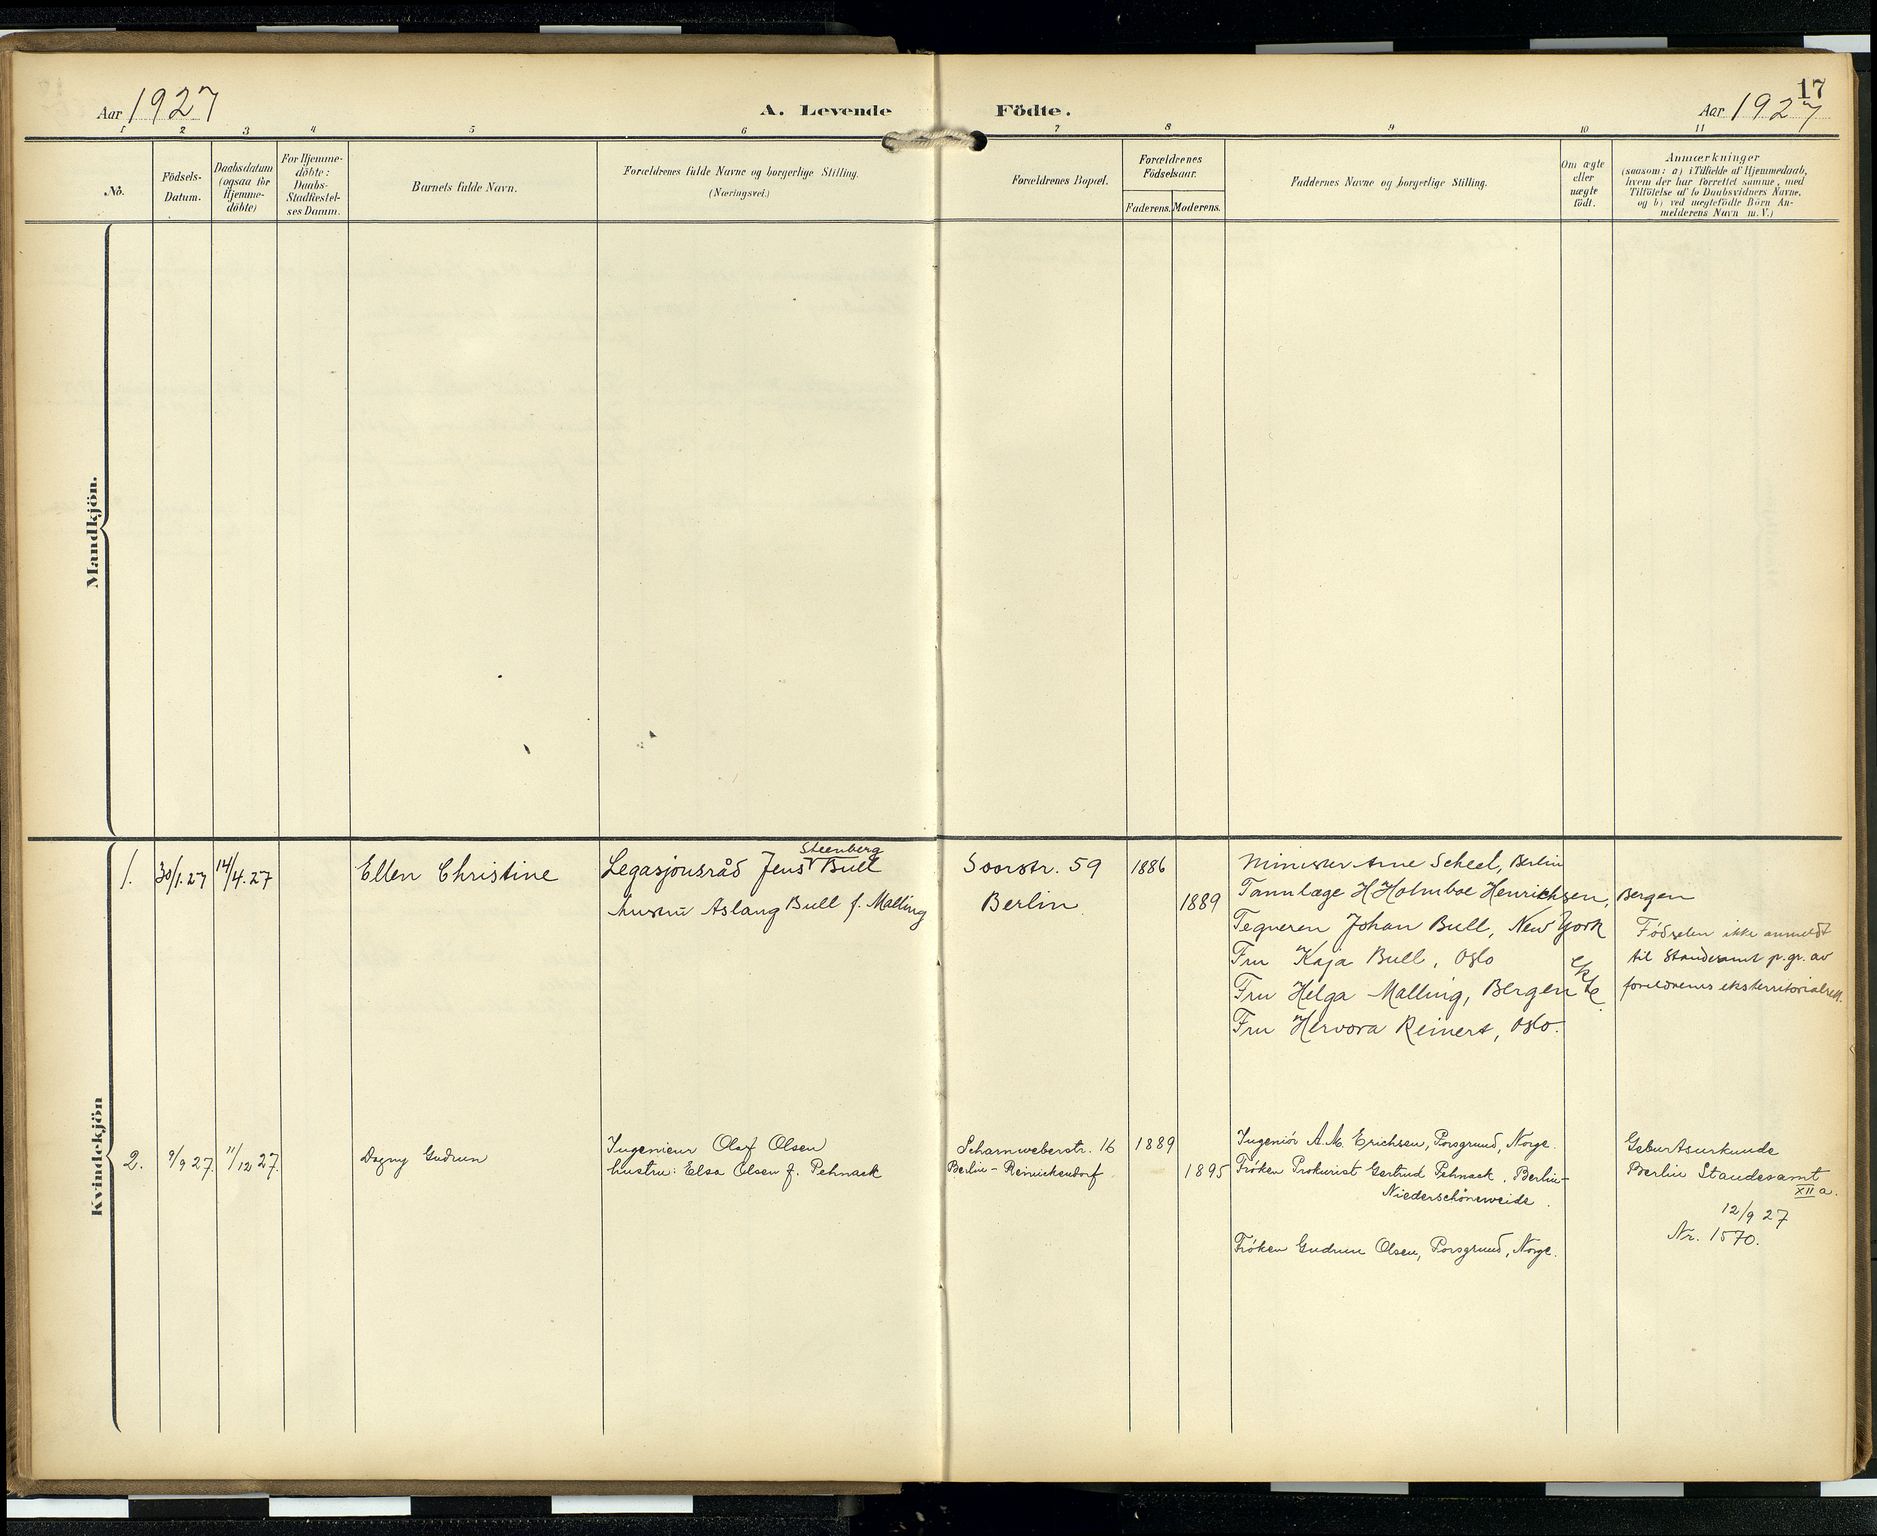 17
Aar 1927
A. Levende Födte.
Aar 1927
1 2 3 4 5 6 7 8 9 10 11
No.
Födsels-
Datum.
Daabsdatum
(ogsaa for
Hjemme-
döbte)
For Hjemme-
döbte:
Daabs-
Stadfæstel-
ses Datum.
Barnets fulde Navn.
Forældrenes fulde Navne og borgerlige Stilling.
(Næringsvei.)
Forældrenes Bopæl.
Forældrenes
Födselsaar.
Faderens. Moderens.
Faddernes Navne og borgerlige Stilling.
Om ægte
eller
uægte
födt.
Anmærkninger
(saasom: a) i Tilfælde af Hjemmedaab,
hvem der har forrettet samme, med
Tilföielse af to Daabsvidners Navne,
og b) ved uægtefödte Börn An-
melderens Navn m. V.)
Mandkjön.
Kvindekjön
1.
30/1.27
14/4.27
Ellen Christine
Steenberg
Legasjonsråd Jens V Bull
hustru Aslaug Bull f. Malling
Soorstr. 59
Berlin
1886
1889
Minister Arne Scheel, Berlin
Tannlæge H Holmboe Henrichsen, Bergen
Tegneren Johan Bull, New York
Fru Kaja Bull, Oslo
Fru Helga Malling, Bergen
Fru Hervora Reinert, Oslo.
Ekte
Fødselen ikke anmeldt
til Standesamt p.gr. av
foreldrenes eksterritorialrett.
2.
9/9 27.
11/12 27.
Dagny Gudrun
Ingenieur Olaf Olsen
hustru: Elsa Olsen f. Pehnack
Scharnweberstr. 16
Berlin-Reinickendorf
1889
1895
Ingeniör A. M. Erichsen, Porsgrund, Norge.
Frøken Prokurist Gertrud Pehnack, Berlin-
Niederschöneweide.
Frøken Gudrun Olsen, Porsgrund, Norge.
Geburtsurkunde
Berlin Standesamt
XII a.
12/9 27
Nr. 1570.